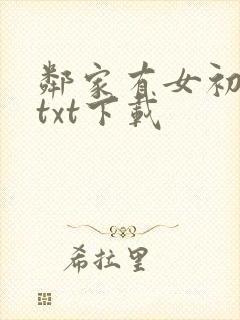 鄰家有女初
txt下載
希拉里